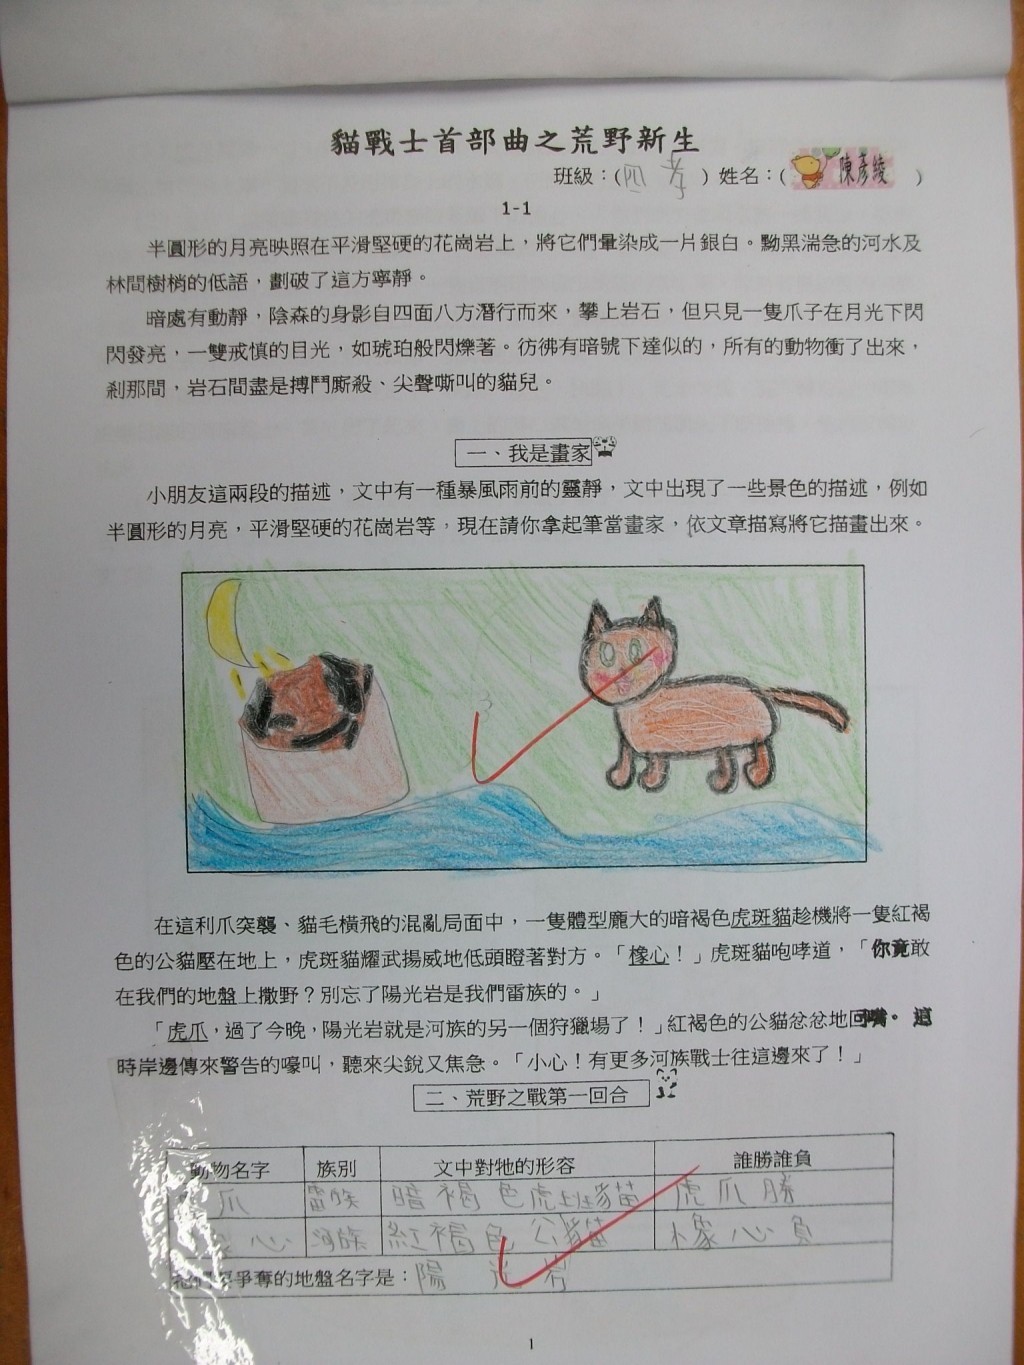 貓戰士首部曲之荒野新生
班級：(四孝) 姓名：(陳彥綾)
1-1
半圓形的月亮映照在平滑堅硬的花崗岩上，將它們暈染成一片銀白。黝黑湍急的河水及
林間樹梢的低語，劃破了這方寧靜。
暗處有動靜，陰森的身影自四面八方潛行而來，攀上岩石，但只見一隻爪子在月光下閃
閃發亮，一雙戒慎的目光，如琥珀般閃爍著。彷彿有暗號下達似的，所有的動物衝了出來，
剎那間，岩石間盡是搏鬥廝殺、尖聲嘶叫的貓兒。
一、我是畫家
小朋友這兩段的描述，文中有一種暴風雨前的靈靜，文中出現了一些景色的描述，例如
半圓形的月亮，平滑堅硬的花崗岩等，現在請你拿起筆當畫家，依文章描寫將它描畫出來。
在這利爪突襲、貓毛橫飛的混亂局面中，一隻體型龐大的暗褐色虎斑貓趁機將一隻紅褐
色的公貓壓在地上，虎斑貓耀武揚威地低頭瞪著對方。「橡心！」虎斑貓咆哮道，「你竟敢
在我們的地盤上撒野？別忘了陽光岩是我們雷族的。」
「虎爪，過了今晚，陽光岩就是河族的另一個狩獵場了！」紅褐色的公貓忿忿地回嘴。這
時岸邊傳來警告的嚎叫，聽來尖銳又焦急。「小心！有更多河族戰士往這邊來了！」
二、荒野之戰第一回合
動物名字 族別 文中對牠的形容 誰勝誰負
爪 雷族 暗褐色虎斑貓 虎爪勝
心 河族 紅褐色公貓 橡心負
爭奪的地盤名字是：陽光岩
1